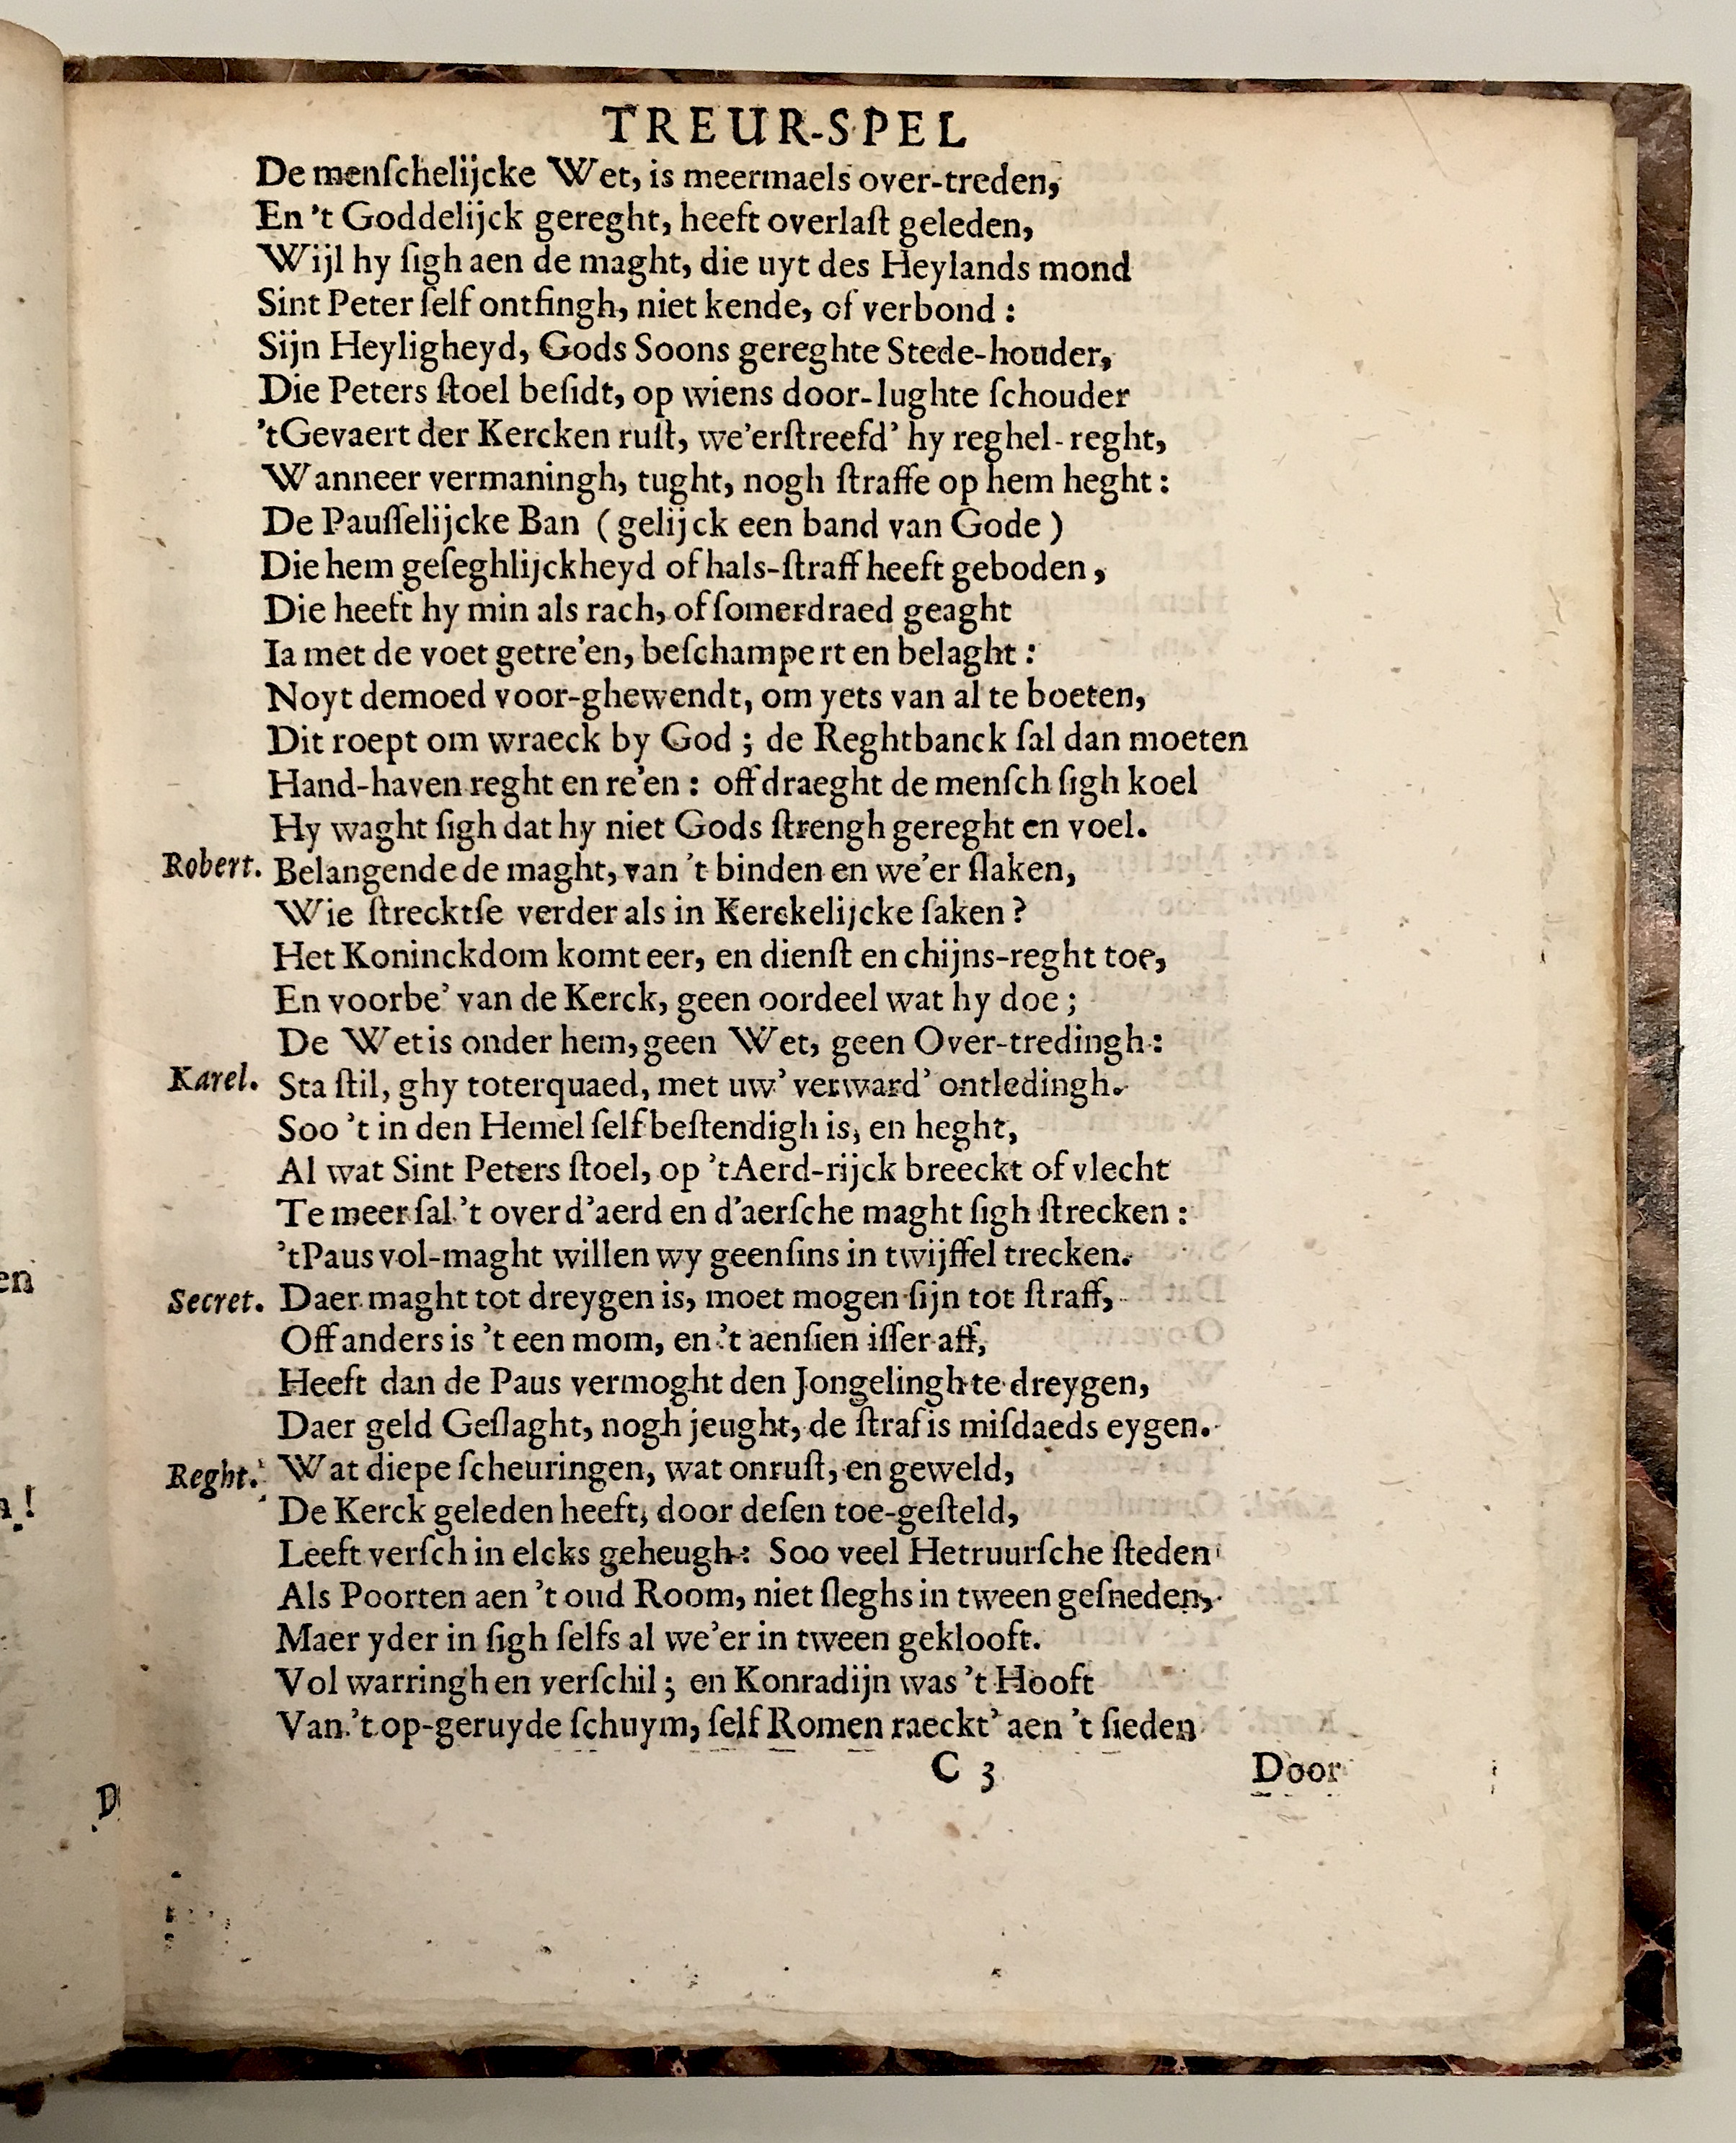 TREUR-SPEL
De menſchelijcke Wet, is meermaels over-treden,
En 't Goddelijck gereght, heeft overlaſt geleden,
Wijl hy ſigh aen de maght, die uyt des Heylands mond
Sint Peter ſelf ontfingh, niet kende, of verbond :
Sijn Heyligheyd, Gods Soons gereghte Stede-houder,
Die Peters ſtoel beſidt, op wiens door-lughte ſchouder
'tGevaert der Kercken ruſt, we'erſtreefd' hy reghel-reght,
Wanneer vermaningh, tught, nogh ſtraffe op hem heght :
De Pauſſelijcke Ban ( gelijck een band van Gode )
Die hem geſeghlijckheyd of hals-ſtraff heeft geboden,
Die heeft hy min als rach, of ſomerdraed geaght
Ia met de voet getre'en, beſchampert en belaght :
Noyt demoed voor-ghewendt, om yets van al te boeten,
Dit roept om wraeck by God ; de Reghtbanck ſal dan moeten
Hand-haven reght en re'en : off draeght de menſch ſigh koel
Hy waght ſigh dat hy niet Gods ſtrengh gereght en voel.
Robert. Belangende de maght, van 't binden en we'er ſlaken,
Wie ſtrecktſe verder als in Kerckelijcke ſaken ?
Het Koninckdom komt eer, en dienſt en chijns-reght toe,
En voorbe' van de Kerck, geen oordeel wat hy doe ;
De Wet is onder hem, geen Wet, geen Over-tredingh :
Karel. Sta ſtil, ghy toterquaed, met uw' verward' ontledingh.
Soo 't in den Hemel ſelf beſtendigh is, en heght,
Al wat Sint Peters ſtoel, op 'tAerd-rijck breeckt of vlecht
Te meer ſal 't over d'aerd en d'aerſche maght ſigh ſtrecken :
'tPaus vol-maght willen wy geenſins in twijffel trecken.
Secret. Daer maght tot dreygen is, moet mogen ſijn tot ſtraff,
Off anders is 't een mom, en 't aenſien iſſer aff,
Heeft dan de Paus vermoght den Jongelingh te dreygen,
Daer geld Geſlaght, nogh jeught, de ſtraf is miſdaeds eygen.
Reght. Wat diepe ſcheuringen, wat onruſt, en geweld,
De Kerck geleden heeft, door deſen toe-geſteld,
Leeft verſch in elcks geheugh : Soo veel Hetruurſche ſteden
Als Poorten aen 't oud Room, niet ſleghs in tween geſneden,
Maer yder in ſigh ſelfs al we'er in tween geklooft.
Vol warringh en verſchil ; en Konradijn was 't Hooft
Van 't op-geruyde ſchuym, ſelf Romen raeckt' aen 't ſieden
C 3 Door